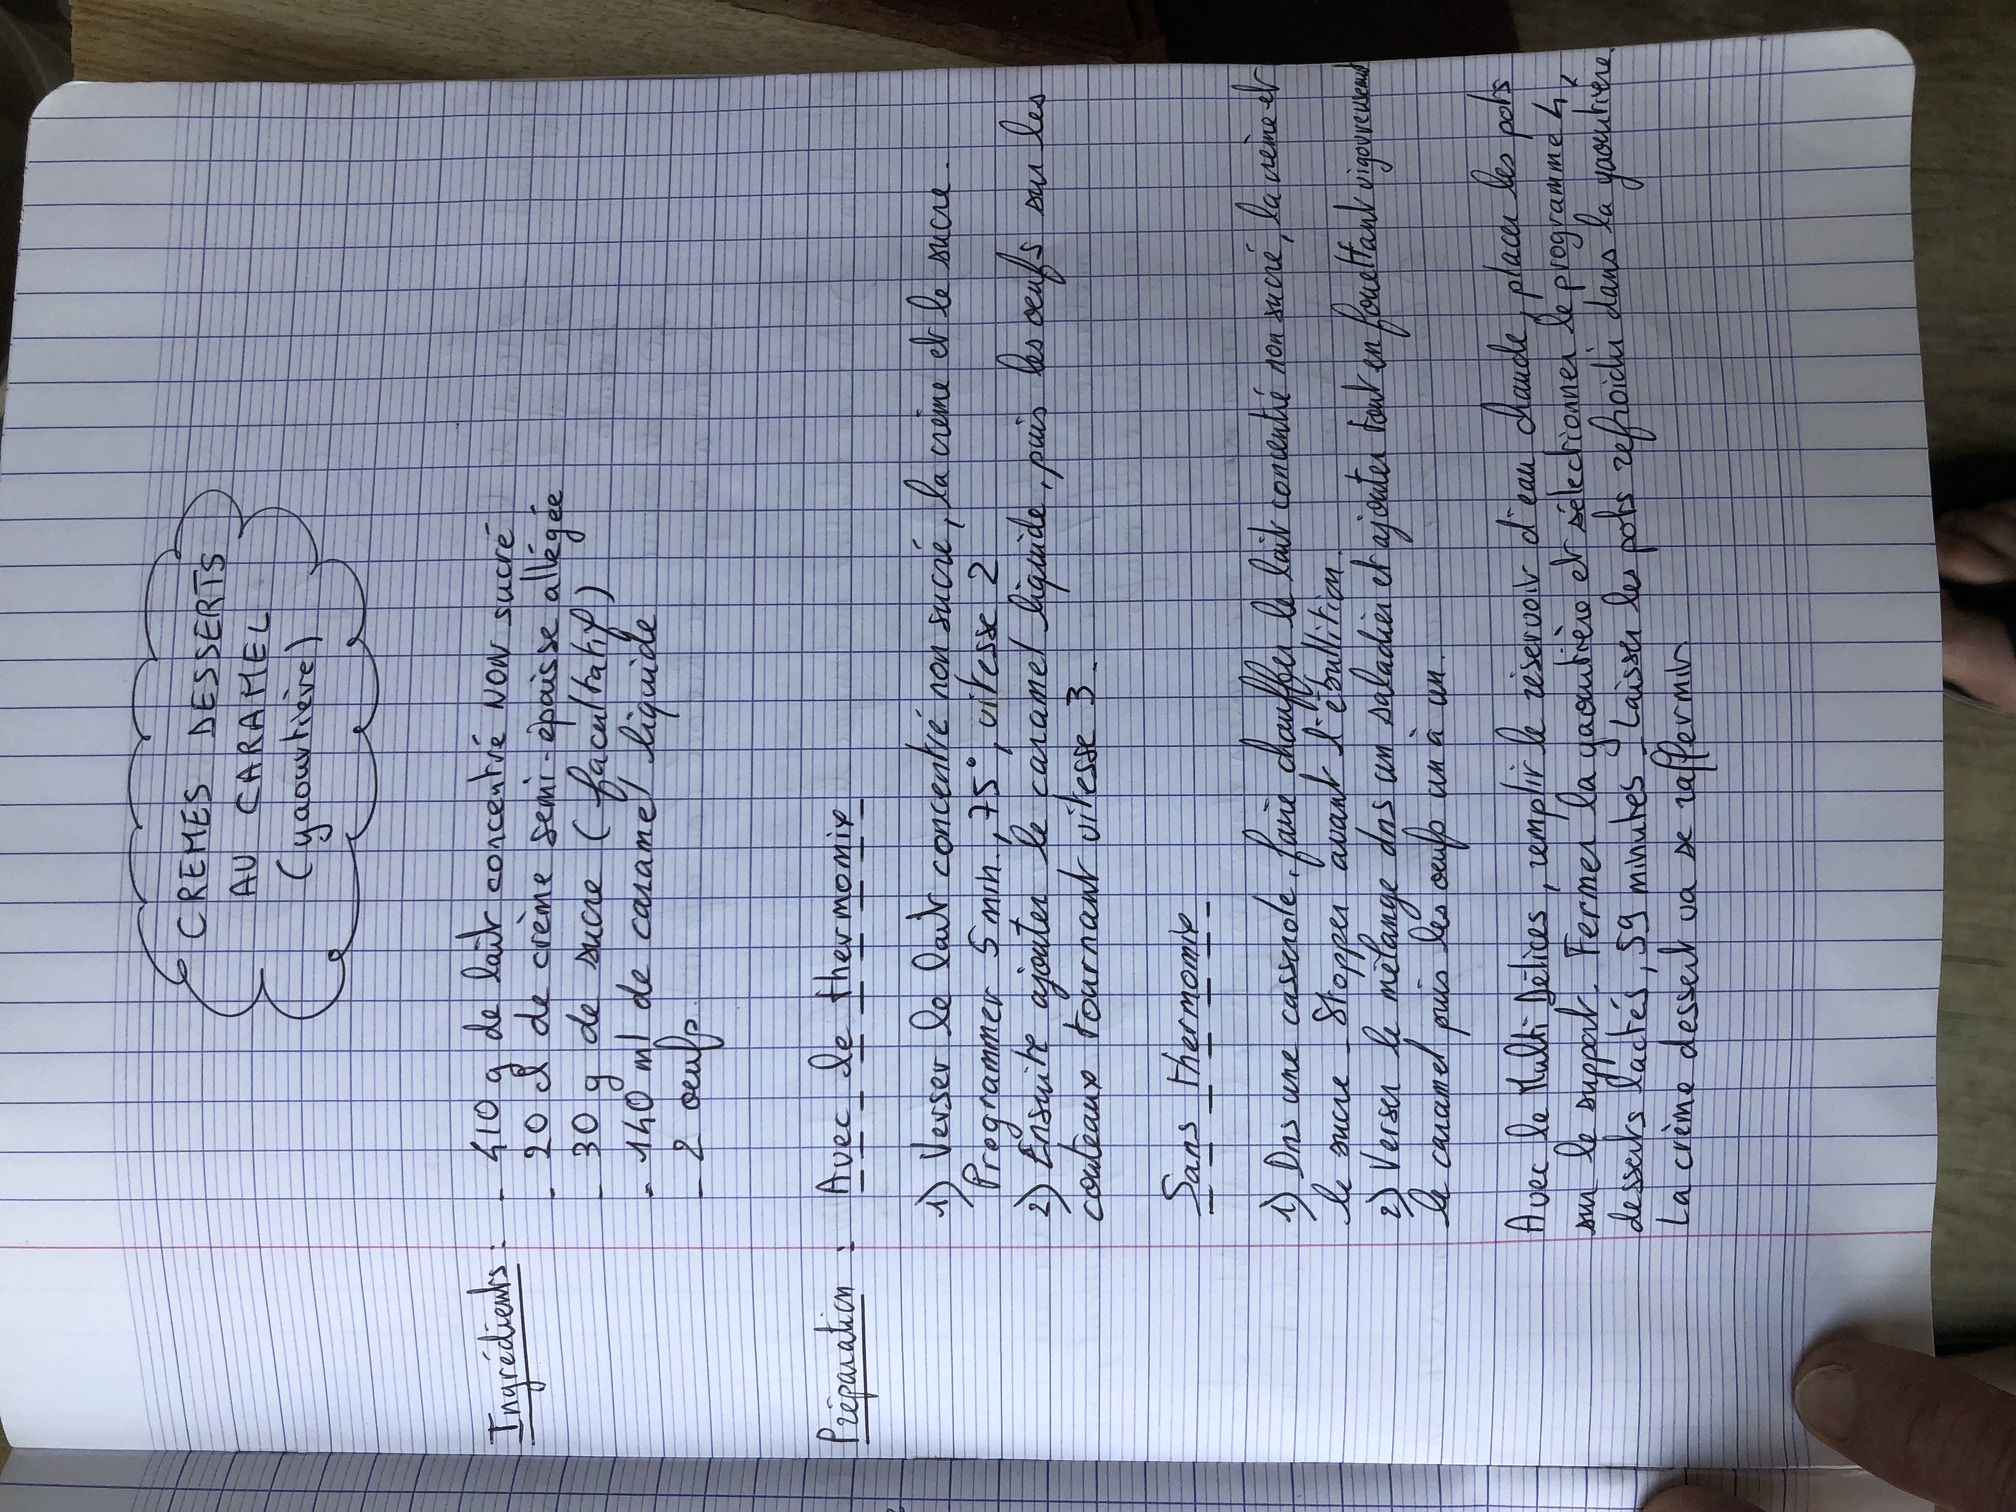 CREMES DESSERTS
AU CARAMEL
(yaourtière)
Ingrédients : - 410 g de lait concentré NON sucré
- 20 cl de crème semi-épaisse allégée
- 30 g de sucre (facultatif)
- 140 ml de caramel liquide
- 2 oeufs
Préparation : Avec le thermomix
1) Verser le lait concentré non sucré, la crème et le sucre.
Programmer 5 min, 75°, vitesse 2
2) Ensuite ajouter le caramel liquide, puis les oeufs sur les
couteaux tournant vitesse 3.
Sans thermomix
1) Dns une casserole, faire chauffer le lait concentré non sucré, la crème et
le sucre. Stopper avant l'ébullition.
2) Verser le mélange dns un saladier et ajouter tout en fouettant vigoureusement
le caramel puis les oeufs un à un.
Avec le Multi Délices, remplir le réservoir d'eau chaude, placer les pots
sur le support. Fermer la yaourtière et sélectionner le programme 4,
desserts lactés, 59 minutes. Laisser les pots refroidir dans la yaourtière.
La crème dessert va se raffermir.